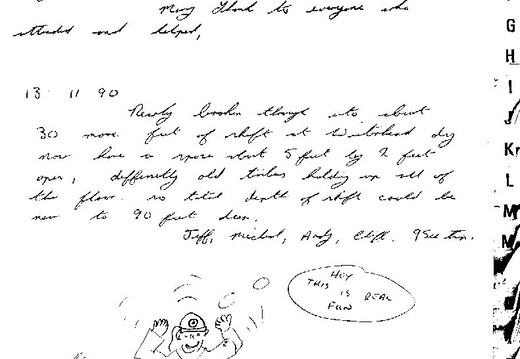 Many Thank to everyone who
attended and helped,
13 11 90
Newly broken through into about
30 more feet of shaft at Waterhead dig
now have a space about 5 feet by 2 feet
open, definitely old timber holding up all of
the floor. so total depth of shaft could be
near to 90 feet deep.
Jeff, Michael, Andy, Cliff.
HEY
THIS IS REAL
FUN
G
H
I
J
L
M